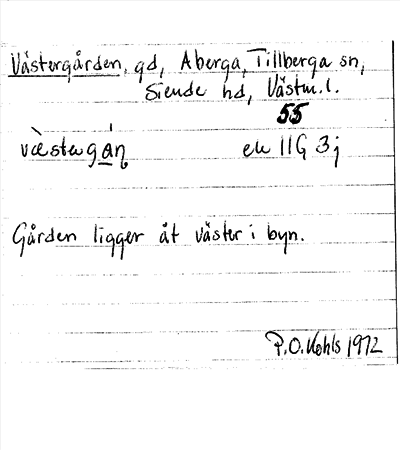 Västergården, gd, Aberga, Tillberga sn,
Siende hd, Västm. l.
55
västergá̱ṇ ek 11G 3j
Gården ligger åt väster i byn.
P.O. Kohls 1972